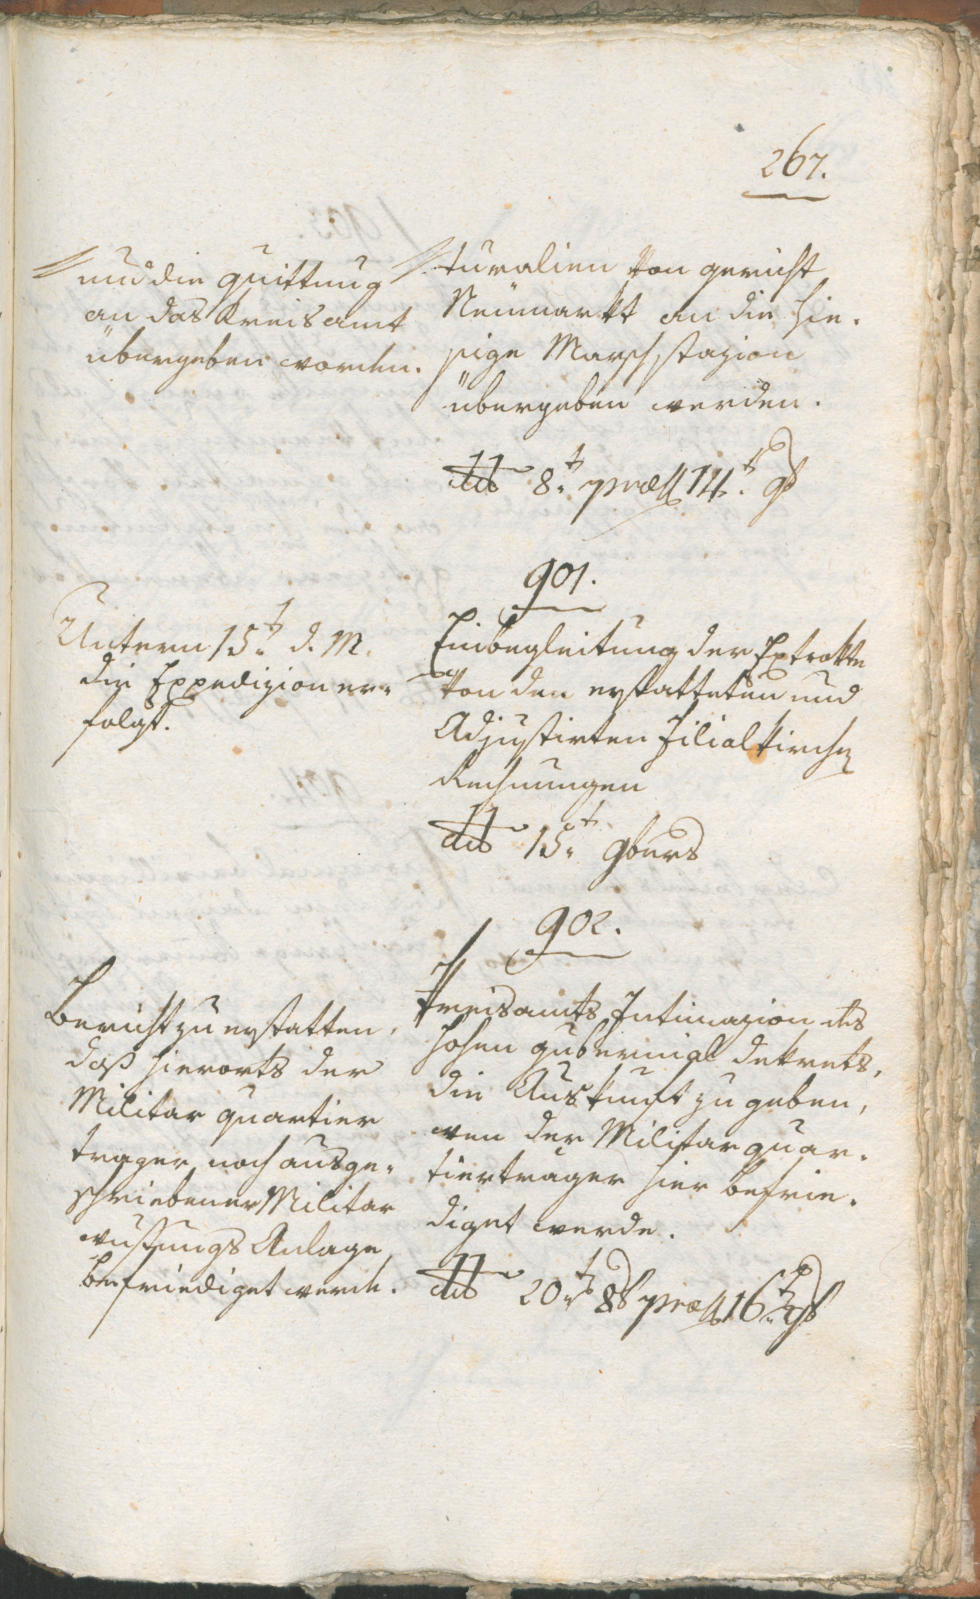 267.
und die Quittung
an das Kreisamt
übergeben worden.
turalien von Gericht
Neumarkt an die hie-
sige Marschstazion
übergeben werden.
dto 8t. præs 14t. 9b
901.
Untern 15t. d. M.
die Expedizion er-
folgt.
Einbegleitung der Extrakte
von den erstatteten und
Adjustirten Filialkirchen
Rechnungen
dto 15t. 9bers
902.
Bericht zu erstatten,
daß hierorts der
Militar quartier
trager nach ausge-
schriebener Militar
Anlage
befriediget werde.
Kreisamts Intimazion des
hohen gubernial dekrets,
die Auskunft zu geben,
wen der Militarquar-
tiertrager hier befrie-
diget werde.
dto 20t. 8b præs 16t. 9b